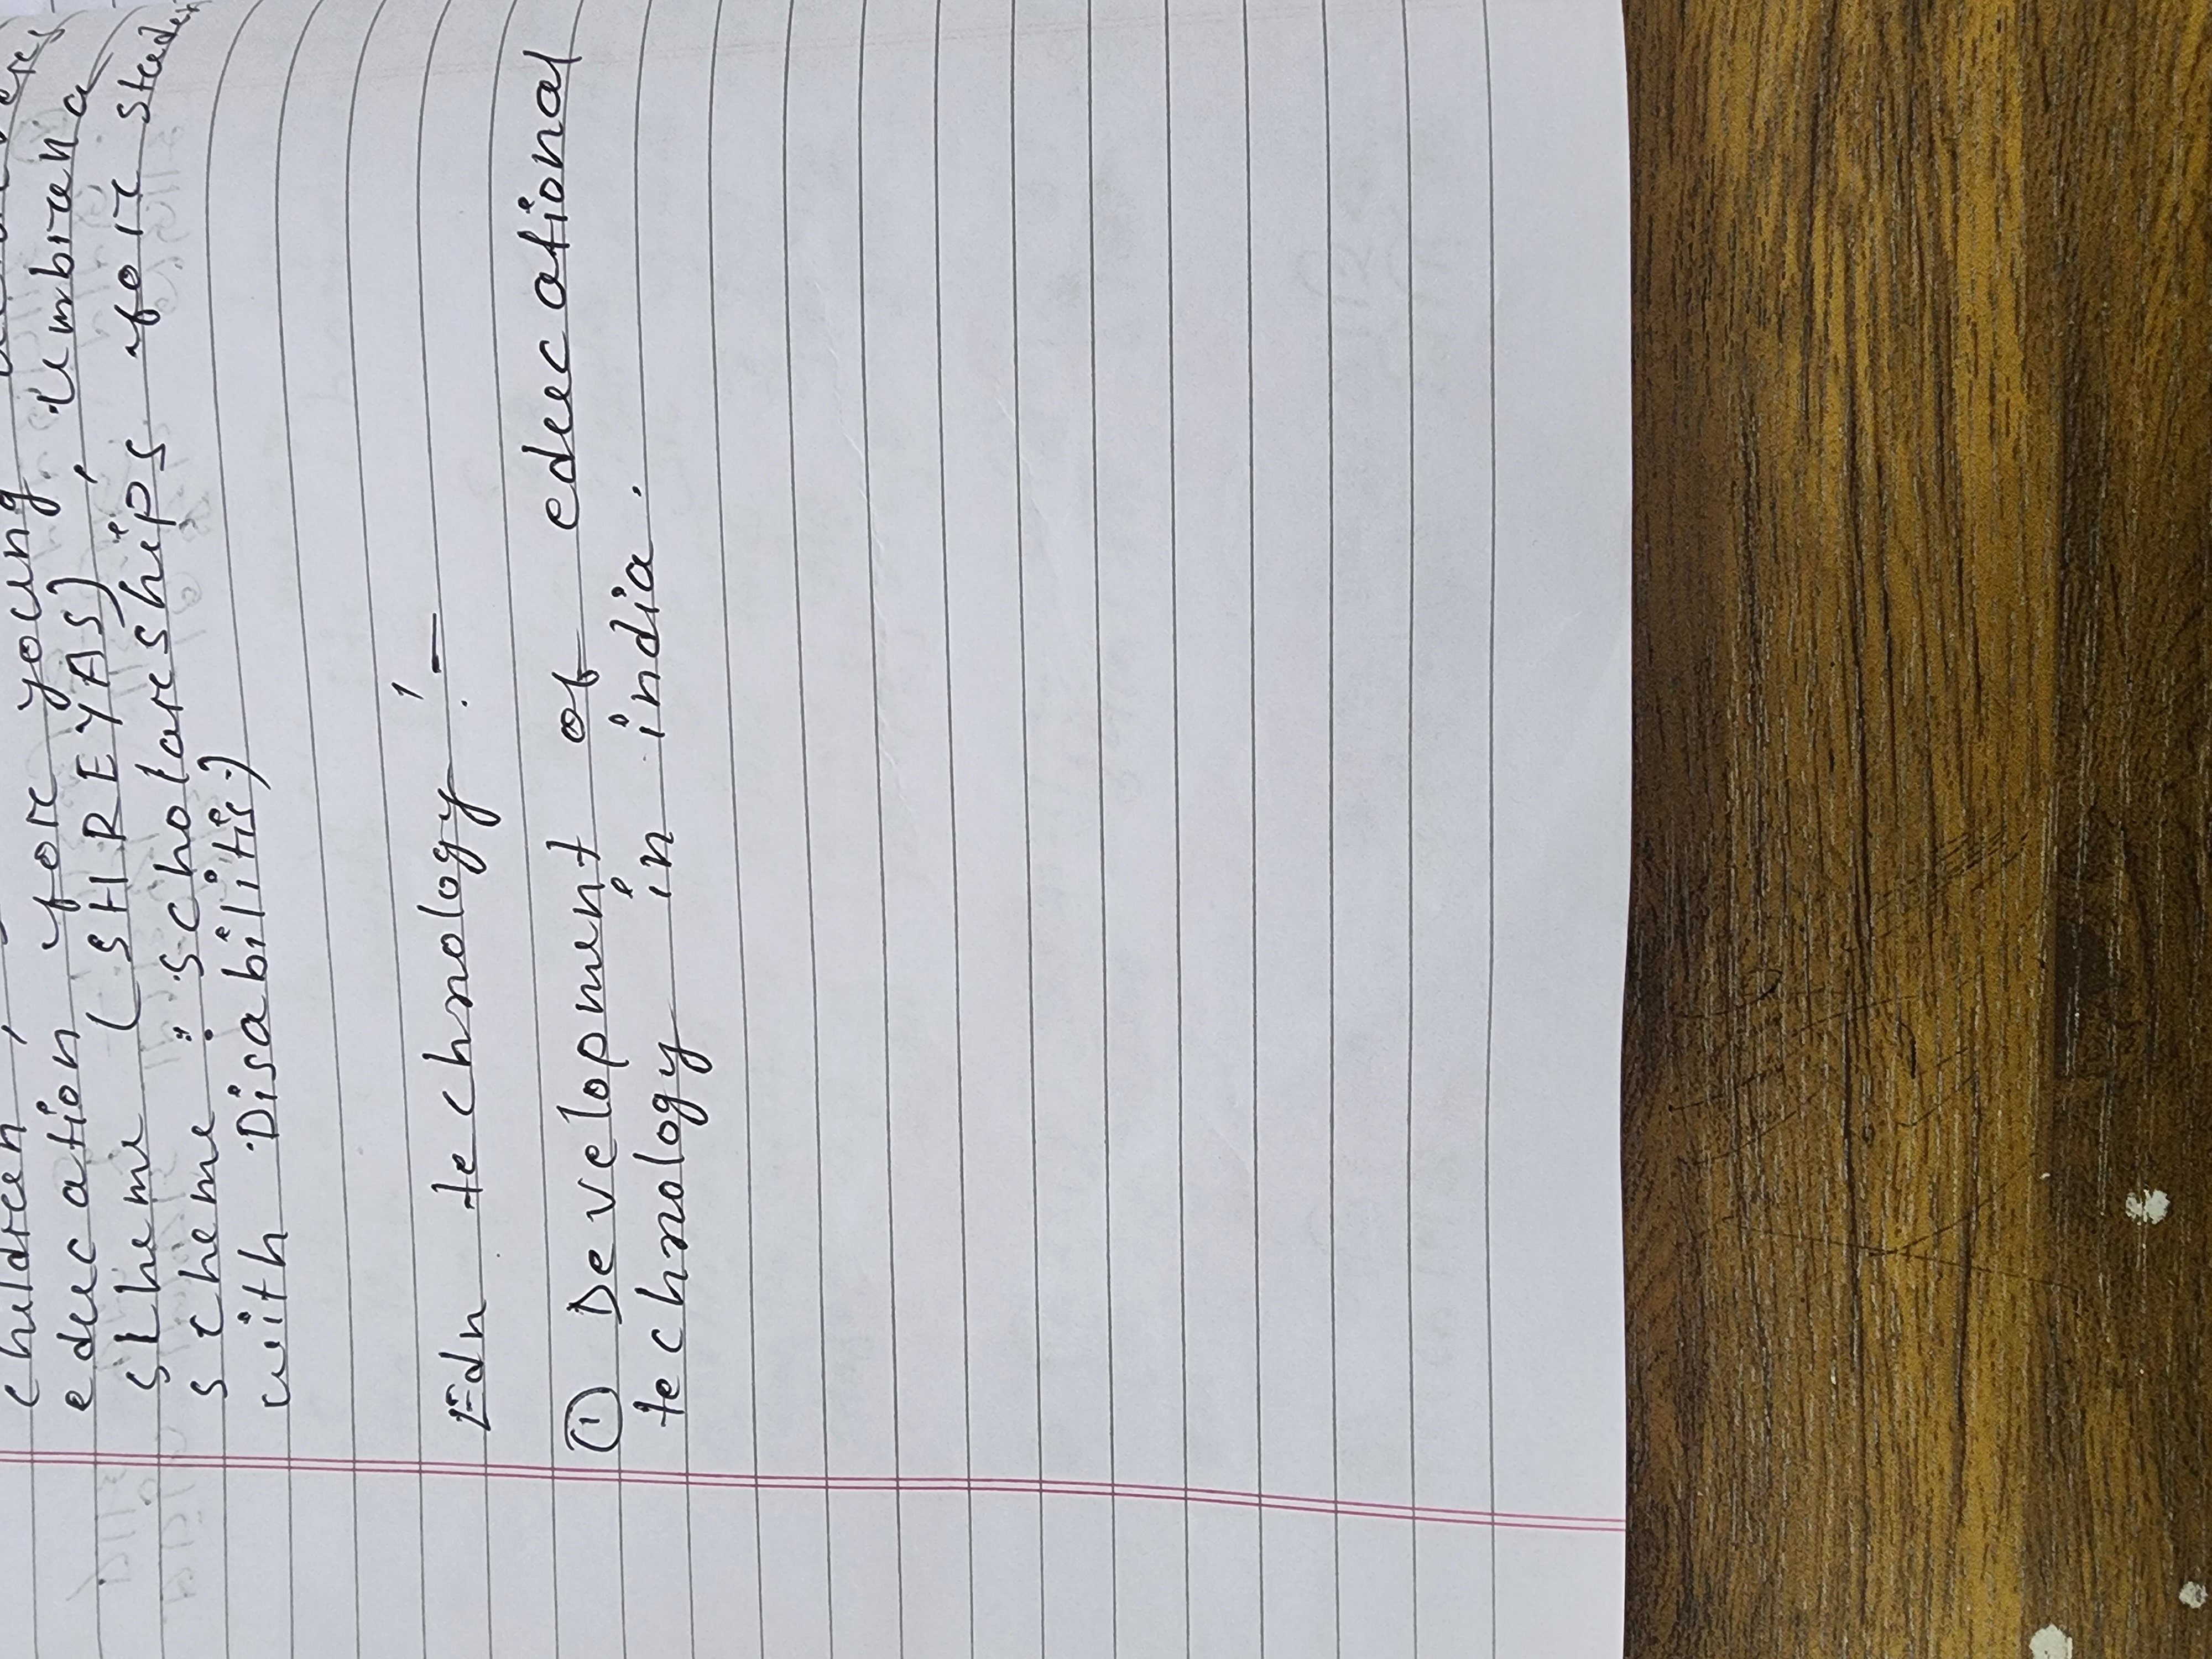 children,
education for young
scheme (SHREYAS), umbrella
scheme : scholarships for
with Disabilitis.)
Edn technology :-
① Development of educational
technology in india.